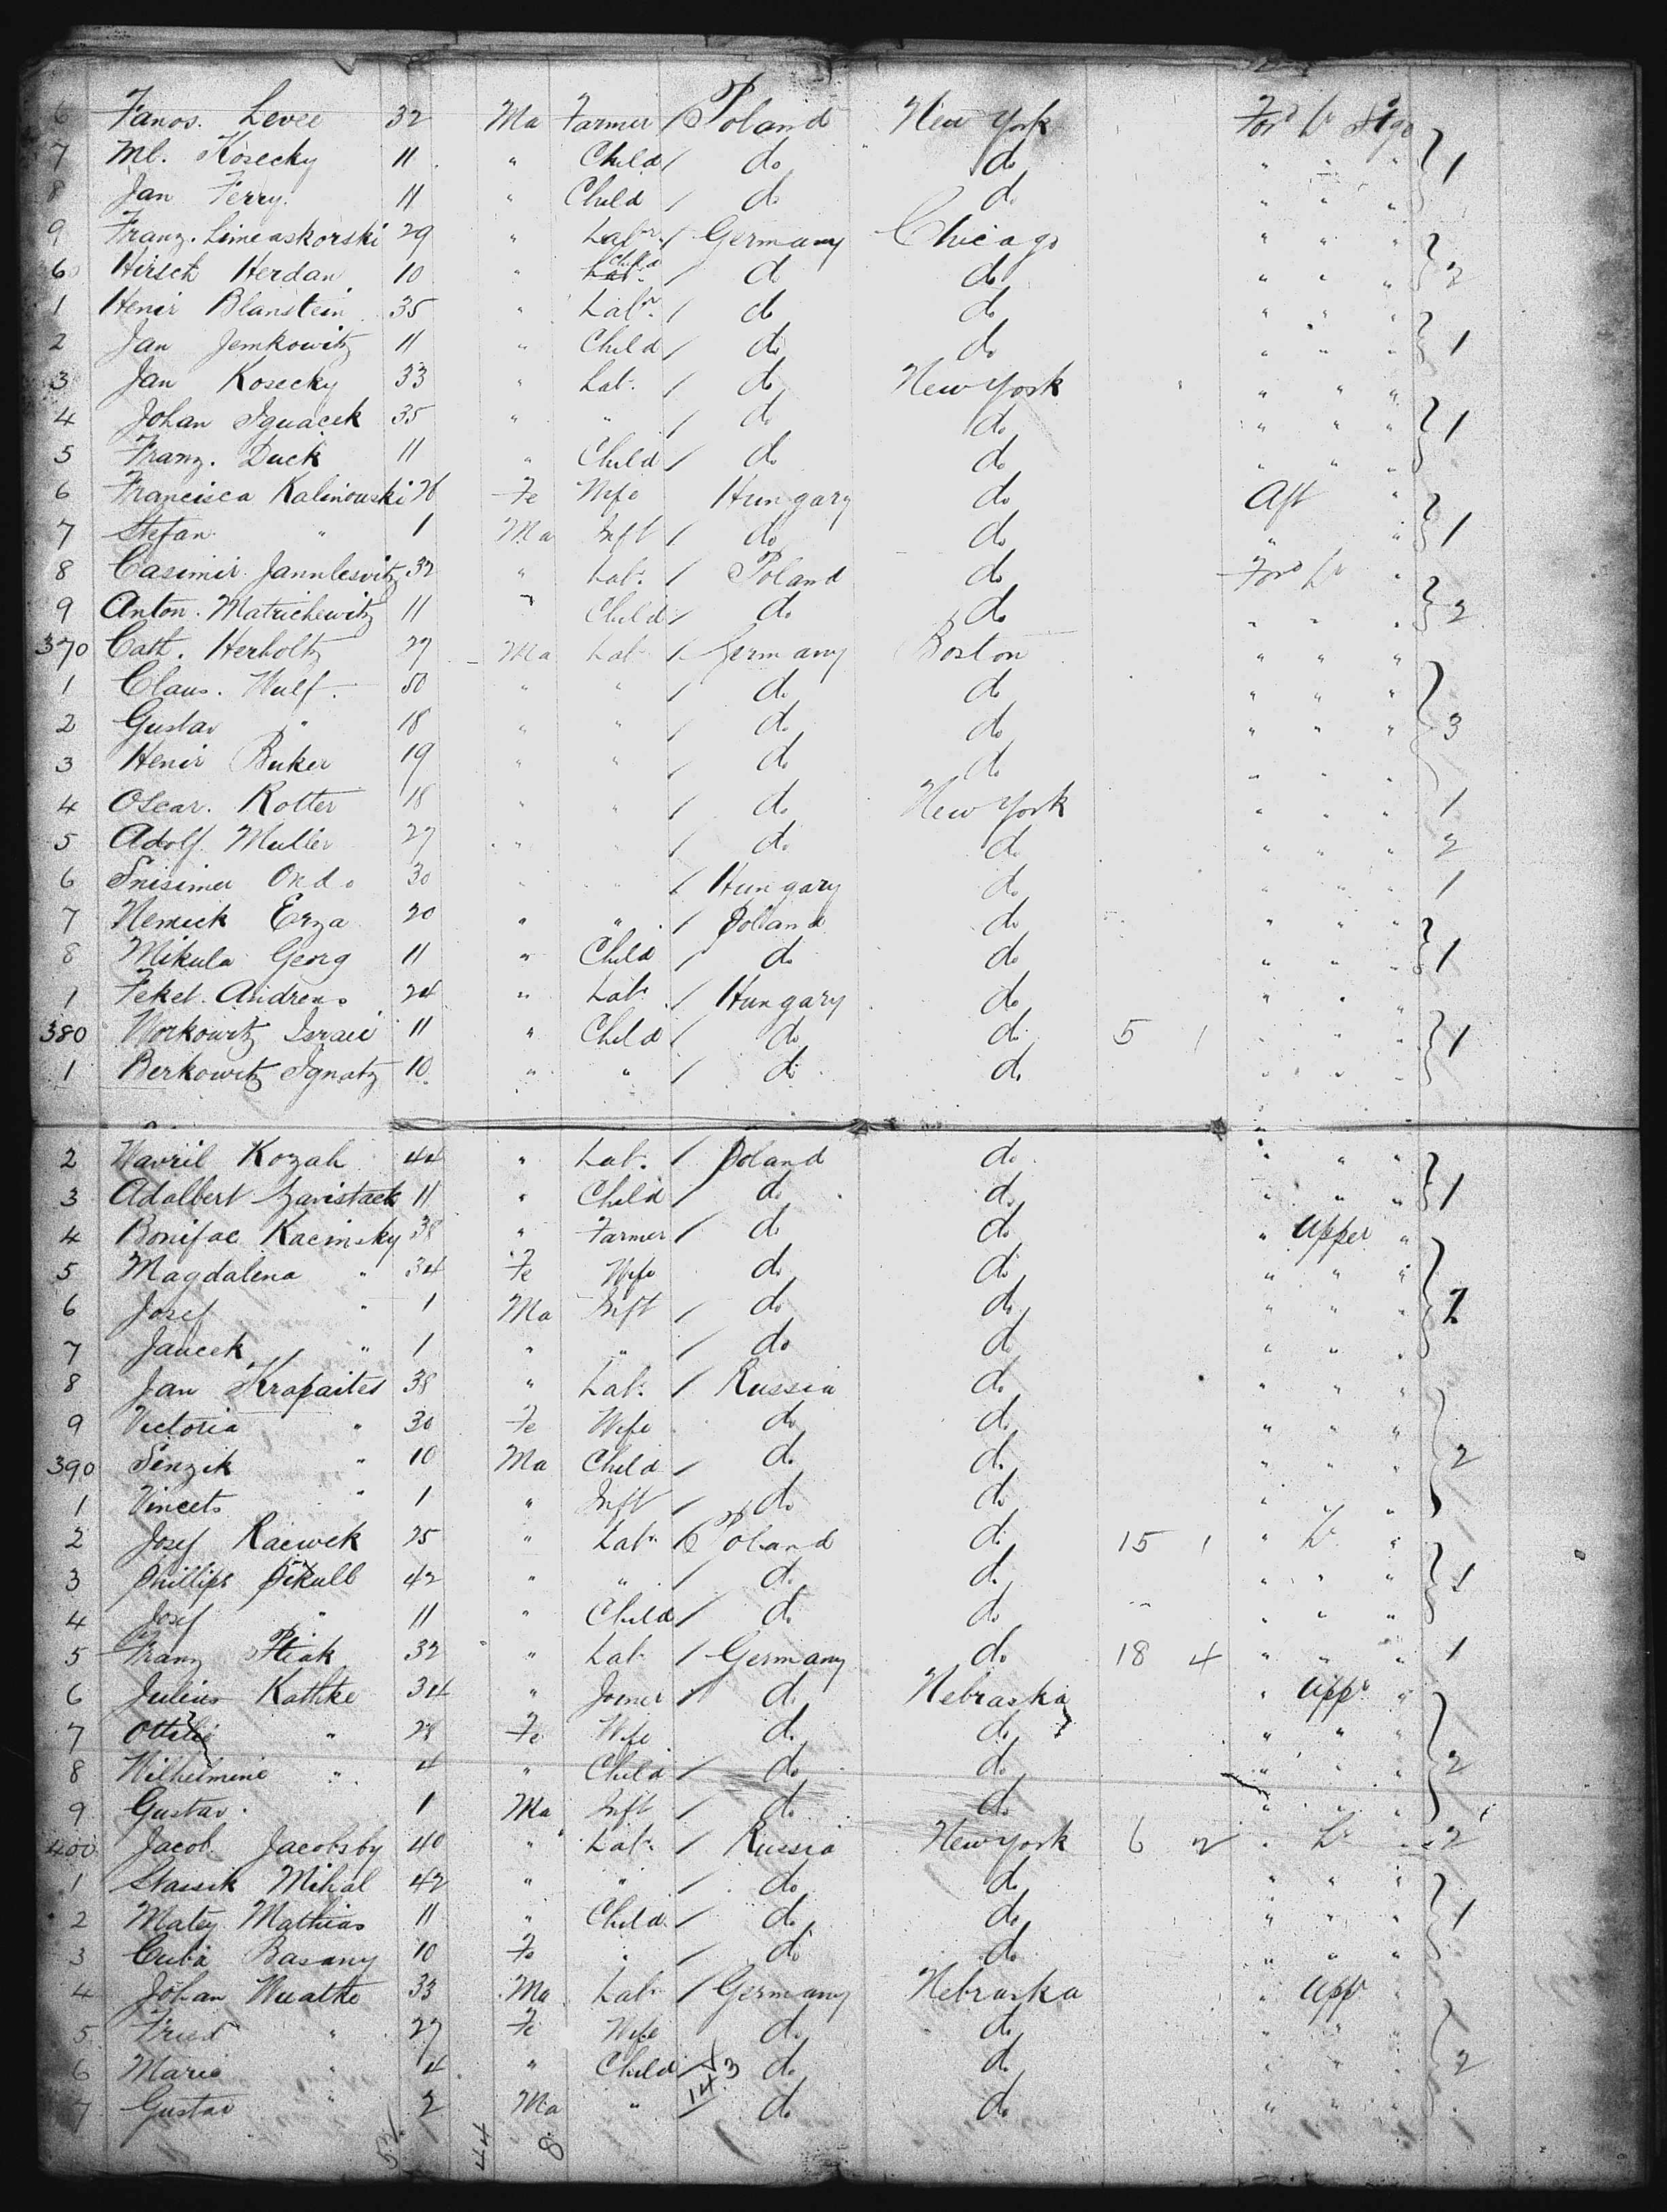 6 Janos. Levee 32 Ma Farmer / Poland New York For'd Lr Stge
7 Ml. Kosecky 11 " Child / do do " " " } 1
8 Jan Ferry. 11 " Child / do do " " "
9 Franz. 29 " Labr. / Germany Chicago " " "
60 Hirsch Herdan 10 " Child / do do " " " } 2
1 Henir Blanstein 35 " Labr. / do do " " "
2 Jan Jemkowitz 11 " Child / do do " " " } 1
3 Jan Kosecky 33 " Lab. / do New York " " "
4 Johan Ignacek 35 " " / do do " " " } 1
5 Franz. Duck 11 " Child / do do " " "
6 Francisca Kalinouski 26 Fe Wife Hungary do Aft "
7 Stefan " 1 Ma Inft / do do " " } 1
8 Casimir 32 " Labr. / Poland do For'd Lr "
9 Anton. Matrichewitz 11 " Child / do do " " " } 2
370 Cath. Herholtz 27 Ma Lab / Germany Boston " " "
1 Claus. Wulf. 50 " " / do do " " "
2 Gustav " 18 " " / do do " " " } 3
3 Henir Buker 19 " " / do do " " "
4 Oscar. Rotter 18 " " / do New York " " " 1
5 Adolf Muller 27 " " / do do " " " 2
6 Snisimer Ondo 30 " " / Hungary do " " " 1
7 Nemick Erza 20 " " / Poland do " " "
8 Mikula Georg 11 " Child / do do " " " } 1
1 Feket. Andreas 24 " Labr / Hungary do " " "
380 Workowitz Israel 11 " Child / do do 5 1 " " " } 1
1 Berkowitz Ignatz 10 " " / do do " " "
2 Wavril Kozah 44 " Lab. / Poland do " " "
3 Adalbert 11 " Child / do do " " " } 1
4 Bonifac Kacinsky 38 " Farmer / do do " Upper "
5 Magdalena " 34 Fe Wife do do " " "
6 Josef " 1 Ma Inft / do do " " " } 2
7 Jaucek " 1 " " / do do " " "
8 Jan Krapaites 38 " Lab. / Russia do " " "
9 Victoria " 30 Fe Wife do do " " "
390 Sinzik " 10 Ma Child / do do " " " } 2
1 Vincets " 1 " Inft / do do " " "
2 Josef Raewek 25 " Labr / Poland do 15 1 " Lr "
3 Phillips Pikull 42 " " / do do " " " } 1
4 Josef " 11 " Child / do do " " "
5 Franz Ptiak 32 " Lab / Germany do 18 4 " " " 1
6 Julius Kathke 34 " Joiner / do Nebraska " Uppr "
7 Ottilie " 28 Fe Wife do do " " "
8 Wilhelmine " 4 " Child / do do " " " } 2
9 Gustav. 1 Ma Inft / do do " " "
400 Jacob. Jacobsby 40 " Labr / Russia New York 6 2 " Lr " 2
1 Stassik Mihal 42 " " / do do " " "
2 Matey Mathias 11 " Child / do do " " " } 1
3 Cuba Basany 10 Fe " / do do " " "
4 Johan Wuathe 33 Ma Labr / Germany Nebraska " Uppr "
5 Fried " 27 Fe Wife do do " " "
6 Marie " 4 " Child / do do " " " } 2
7 Gustav " 2 Ma " / do do " " "
143
52 44 8